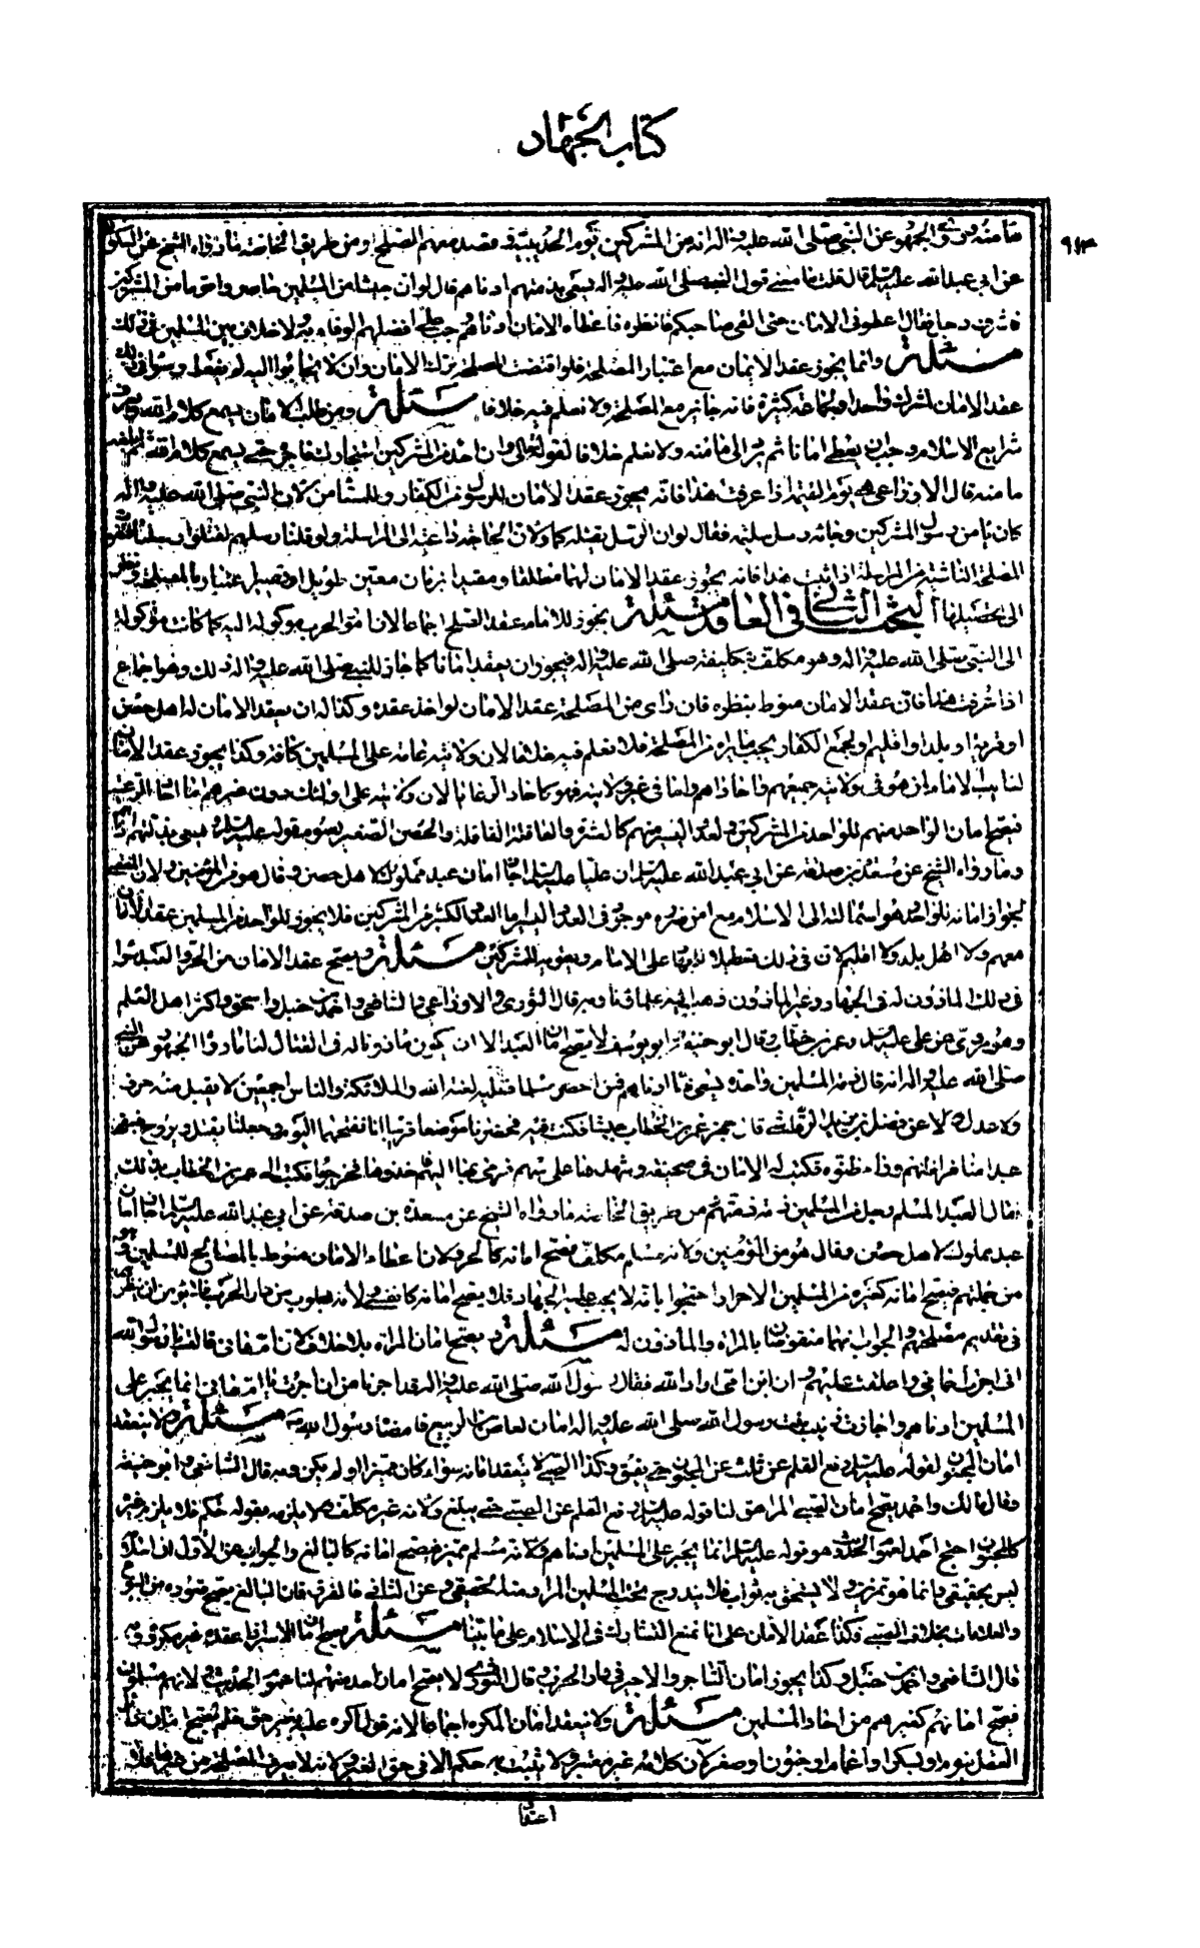 كتاب الجهاد
٩١٣
مأمنه وروى الجمهور عن النبي صلى الله عليه واله انه من المشركين يوم الحديبية وقصد معهم الصلح ومن طريق الخاصة ما رواه الشيخ عن السكوني
عن ابي عبد الله عليه السلم قال قلت ما معنى قول النبي صلى الله عليه واله يسعى بذمتهم ادناهم قال لو ان جيشا من المسلمين حاصروا قوما من المشركين
فاشرف رجل فقال اعطوني الامان حتى القى صاحبكم فاناظره فاعطاه الامان ادناهم وجب على افضلهم الوفاء به ولا خلاف بين المسلمين في ذلك
مسئلة وانما يجوز عقد الامان مع اعتبار المصلحة فلو اقتضت المصلحة ترك الامان وان لا يجابوا اليه لم يفعل وسواء في ذلك
عقد الامان لمشرك واحد او جماعة كثيرة فانه جائز مع المصلحة ولا نعلم فيه خلافا مسئلة ومن طلب الامان ليسمع كلام الله ويعرف
شرايع الاسلام وجب ان يعطى امانا ثم يرد الى مأمنه ولا نعلم خلافا لقوله تعالى وان احد من المشركين استجارك فاجره حتى يسمع كلام الله ثم ابلغه
مأمنه قال الاوزاعي هي يوم القيمة اذا عرفت هذا فانه يجوز عقد الامان للرسول من الكفار وللمستأمن لان النبي صلى الله عليه واله
كان يأمن رسول المشركين وجائه رسل مسيلمة فقال لولا ان الرسل لا يقتل كما ولان الحاجة داعية الى المراسلة ولو قتلنا رسلهم لقتلوا رسلنا فتفوت
المصلحة الناشئة من المراسلة اذا ثبت هذا فانه يجوز عقد الامان لهما مطلقا ومقيدا بزمان معين طويل او قصير باعتبار المصلحة ونظر
الى تحصيلها البحث الثاني في العاقد مسئلة يجوز للامام عقد الصلح اجماعا لان امور الحرب موكولة اليه كما كانت موكولة
الى النبي صلى الله عليه واله وهو مكلف بتكليفه صلى الله عليه واله فيجوز ان يعقد امانا كما جاز للنبي صلى الله عليه واله ذلك وهو اجماع
اذا عرفت هذا فان عقد الامان منوط بنظره فان رأى من المصلحة عقد الامان لواحد عقده وكذا له ان يعقد الامان لاهل حصن
او قرية او بلد او اقليم ولجميع الكفار بحسب ما يراه من المصلحة فلا نعلم فيه خلافا لان ولايته عامة على المسلمين كافة وكذا يجوز عقد الامان
لنايب الامام ان هو في ولايته جميعهم واحادهم واما في غير ولايته فهو كاحاد الرعايا لان ولايته على اولئك دون غيرهم اما احاد الرعية
فيصح امان الواحد منهم للواحد من المشركين ولعدد اليسير منهم كالعشرة والقافلة القليلة والحصن الصغير لعموم قوله عليه السلم يسعى بذمتهم ادناهم
وما رواه الشيخ عن مسعدة بن صدقة عن ابي عبد الله عليه السلم ان عليا عليه السلم اجاز امان عبد مملوك لاهل حصن وقال هو من المؤمنين ولان المقتضي
لجواز امانه للواحد هو استمالته الى الاسلام مع امن ضرره موجود في العدد اليسير اما العدد الكثير من المشركين فلا يجوز للواحد من المسلمين عقد الامان
معهم ولا اهل بلد ولا اقليم لان في ذلك تعطيلا للجهاد على الامام وتقوية للمشركين مسئلة ويصح عقد الامان من الحر والعبد سواء
في ذلك المأذون له في الجهاد وغير المأذون ذهب اليه علماؤنا وبه قال الثوري والاوزاعي والشافعي واحمد بن حنبل واسحق واكثر اهل العلم
وهو مروي عن علي عليه السلم وعمر بن خطاب وقال ابو حنيفة وابو يوسف لا يصح امان العبد الا ان يكون مأذونا له في القتال لنا ما رواه الجمهور عن النبي
صلى الله عليه واله انه قال ذمة المسلمين واحدة يسعى بها ادناهم فمن اخفر مسلما فعليه لعنة الله والملائكة والناس اجمعين لا يقبل منه صرف
ولا عدل ولا عن فضيل بن يزيد الرقاشي قال جهز عمر بن الخطاب جيشا فكنت فيه فحضرنا موضعا فرأينا انا نفتحها اليوم وجعلنا نقبل ونروح فبقى
عبد منا فراطنهم وفراطنوه فكتب لهم الامان في صحيفة وشدها على سهم فرمى بها اليهم فخذوها فخرجوا فكتب الى عمر بن الخطاب بذلك
فقال العبد المسلم رجل من المسلمين ذمته ذمتهم من طريق الخاصة ما رواه الشيخ عن مسعدة بن صدقة عن ابي عبد الله عليه السلم اجاز امان
عبد مملوك لاهل حصن وقال هو من المؤمنين ولانه مسلم مكلف فصح امانه كالحر ولان اعطاء الامان منوط بالمصالح للمسلمين وهو
من جملتهم فيصح امانه كغيره من المسلمين الاحرار احتجوا بانه لا يجب عليه الجهاد فلا يصح امانه كالصبي ولانه مجلوب من دار الحرب فلا يؤمن ان ينظر
في تقديم مصلحتهم والجواب انهما منقوضان بالمراة والمأذون له مسئلة ويصح امان المراة بلا خلاف لان ام هاني قالت يا رسول الله
اني اجرت احمائي واغلقت عليهم وان ابن امي اراد الله فقال رسول الله صلى الله عليه واله قد اجرنا من اجرت يا ام هاني انما يجير على
المسلمين ادناهم واجازت زينب بنت رسول الله صلى الله عليه واله امان لعاص بن الربيع فامضاه رسول الله ص مسئلة ولا ينعقد
امان المجنون لقوله عليه السلم رفع القلم عن ثلث عن المجنون حتى يفيق وكذا الصبي لا ينعقد امانه سواء كان مميزا او لم يكن وبه قال الشافعي وابو حنيفة
وقال مالك واحمد يصح امان الصبي المراهق لنا قوله عليه السلم رفع القلم عن الصبي حتى يبلغ ولانه غير مكلف ولا يلزمه بقوله حكم فلا يلزم غيره
كالمجنون احتج احمد بعموم الحديث وهو قوله عليه السلم انما يجير على المسلمين ادناهم ولانه مسلم مميز فيصح امانه كالبالغ والجواب عن الاول ان اسلامه
ليس بحقيقي وانما هو تمرين ولا يستحق به ثوابا فلا يندرج تحت المسلمين المراد منه الحقيقي وعن الثاني فالفرق فان البالغ يصح عقوده من البيوع
والعقود بخلاف الصبي فكذا عقد الامان على انا نمنع التشارك في الاسلام على ما بيناه مسئلة ويصح امان الاسير اذا عقده غير مكره وبه
قال الشافعي واحمد بن حنبل وكذا يجوز امان التاجر والاجير في دار الحرب وقال الثوري لا يصح امان احد منهم لنا عموم الحديث ولانهم مسلمون
فصح امانهم كغيرهم من احاد المسلمين مسئلة ولا ينعقد امان المكره اجماعا لانه قول اكره عليه بغير حق فلم يصح امان زائل
العقل بنوم او سكر او اغماء او جنون او صغر لان كلامه غير معتبر ولا يثبت به حكم الا في حق الغير ولانه لا يعرف المصلحة من غيرها فلا
اعتقا